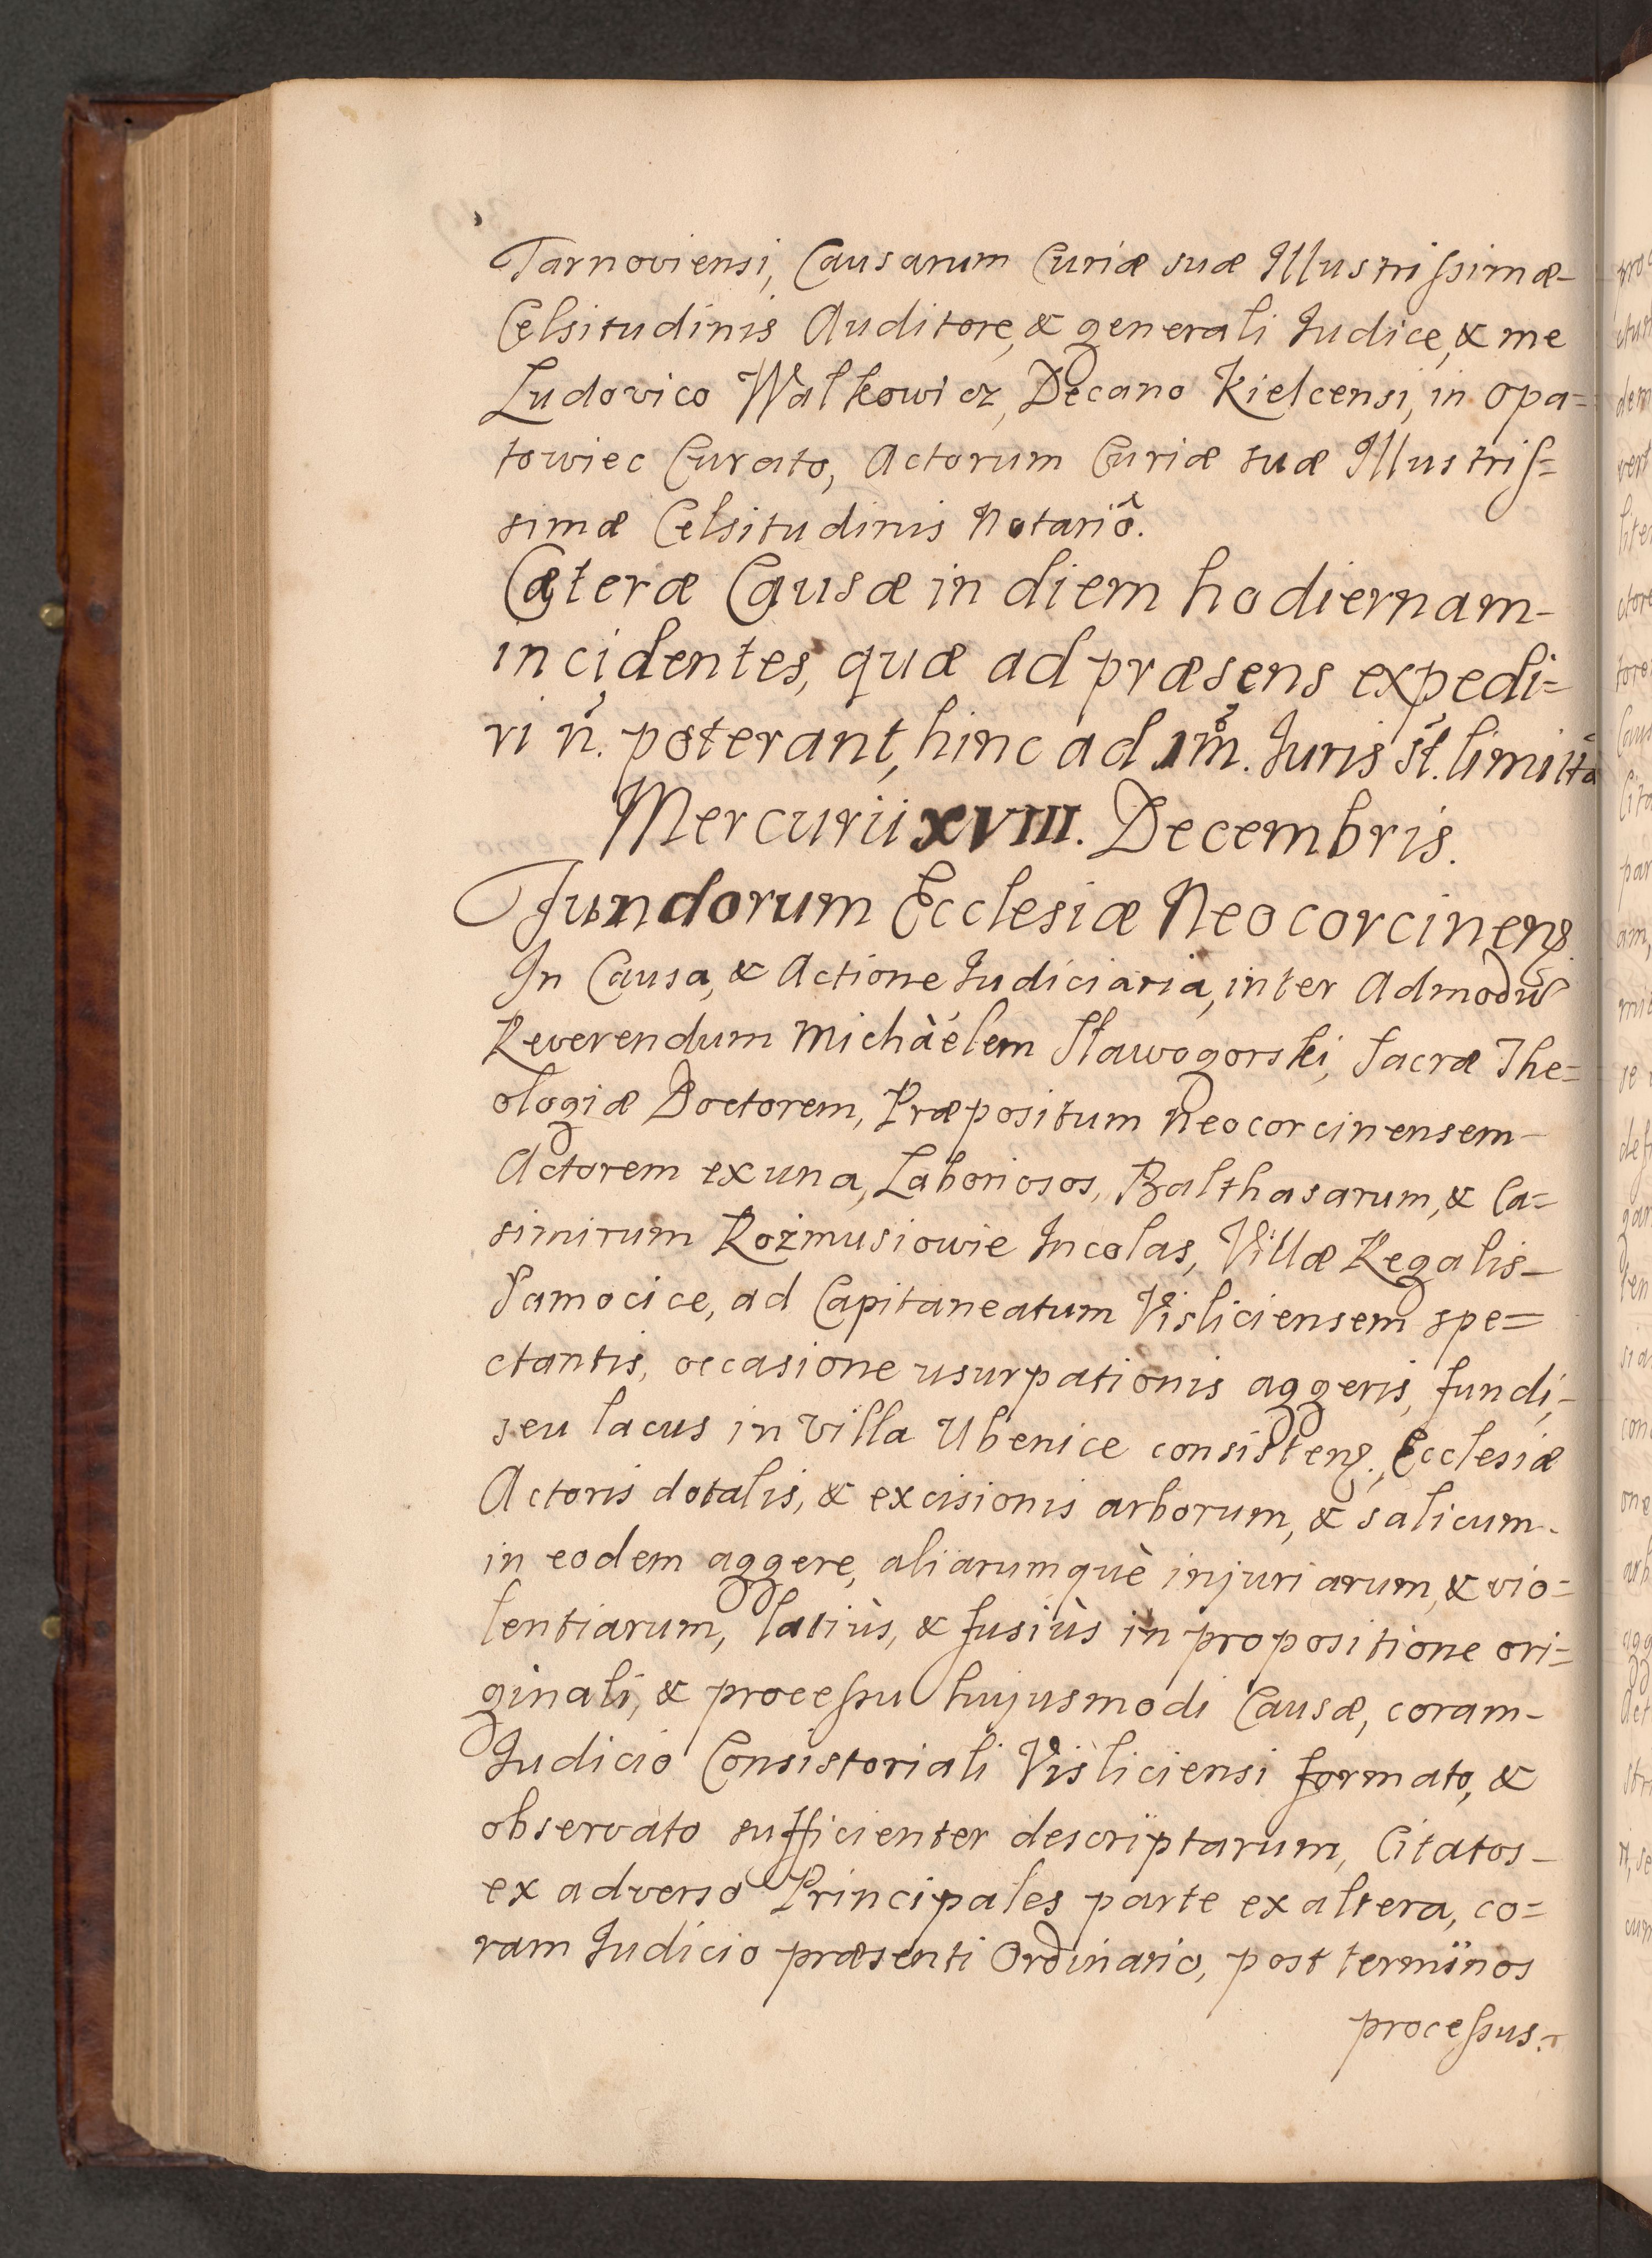 Tarnoviensi, Causarum Curiæ suæ Illustrissimæ-
Celsitudinis Auditore, & generali Iudice, & me
Ludovico Walkowicz, Decano Kielcensi, in Opa=
towiec Curato, Actorum Curiæ suæ Illustris=
simæ Celsitudinis Notariô.
Cæteræ Causæ in diem hodiernam-
incidentes, quæ ad præsens expedi=
ri n̄. poterant, hinc ad 1m̊. Iuris st̄.
Mercurii XVIII. Decembris.
Fundorum Ecclesiæ Neocorcinens.
In Causa, & Actione Iudiciaria, inter Admodū
Reverendum Michàélem Sławogorski, Sacræ The=
ologiæ Doctorem, Præpositum Neocorcinensem-
Actorem ex una, Laboriosos, Balthasarum, & Ca=
simirum Rożmusiowie Incolas, Villæ Regalis-
Jamocice, ad Capitaneatum Visliciensem spe=
ctantis, occasione usurpationis aggeris, fundi,-
seu lacus in Villa Ubenice consistens., Ecclesiæ
Actoris dotalis, & excisionis arborum, & salicum-
in eodem aggere, aliarumquè injuriarum, & vio=
lentiarum, latiùs, & fusiùs in propositione ori=
ginali, & processu hujusmodi Causæ, coram-
Iudicio Consistoriali Visliciensi formato, &
observato sufficienter descriptarum, Citatos-
ex adverso Principales parte ex altera, co=
ram Iudicio præsenti Ordinario, post terminos
processus.